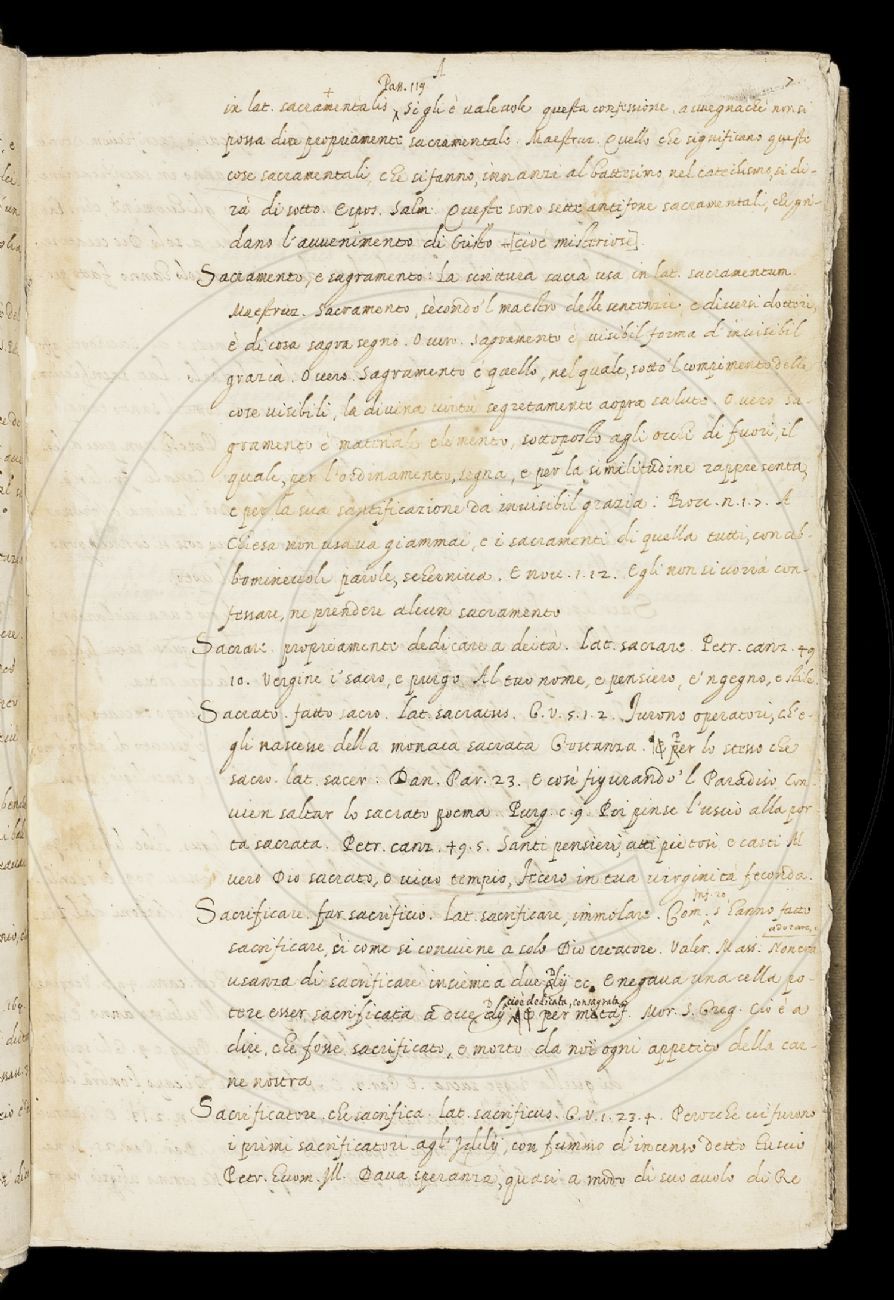 A
Pass. 119
in lat. sacramentalis si gli è valevole questa confessione, avvegnacchè non si
possa dire propriamente sacramentale. Maestruz. Quello che significano queste
cose sacramentali, che si fanno, innanzi al battesimo nel catechismo, si di-
rà di sotto. Espos. Salm. Queste sono sette antifone sacramentali, che gri-
dano l'avvenimento di Cristo [cioè misteriose].
Sacramento, e sagramento. La scrittura sacra usa in lat. sacramentum.
Maestruz. Sacramento, secondo 'l maestro delle sentenzie, e diversi dottori,
è di cosa sagra segno. Overo. Sagramento è visibil forma d'invisibil
grazia. Overo. Sagramento è quello, nel quale, sotto 'l compimento delle
cose visibili, la divina virtù segretamente aopra salute. Overo Sa-
gramento è material elemento, sottoposto agli occhi di fuori, il
quale, per l'ordinamento, segna, e per la similitudine rappresenta,
e per la sua santificazione dà invisibil grazia. Bocc. n. 1. 7. A
Chiesa non usava giammai, e i sacramenti di quella tutti, con ab-
bominevoli parole, scherniva. E nov. 1. 12. Egli non si vorrà con-
fessare, ne prendere alcun sacramento
Sacrare. propriamente dedicare a deità. Lat. sacrare. Petr. canz. 49
10. Vergine i' sacro, e purgo Al tuo nome, e pensiero, e 'ngegno, e stile.
Sacrato. fatto sacro. Lat. sacratus. G. V. 5. 1. 2. Furono operatori, ch'e-
gli nascesse della monaca sacrata Gostanza. per lo stesso che
sacro. lat. sacer. Dan. Par. 23. e così figurando 'l Paradiso Con-
vien saltar lo sacrato poema Purg. c. 9. Poi pinse l'uscio alla por-
ta sacrata. Petr. canz. 49. 5. Santi pensieri, atti pietosi e casti Al
vero Dio sacrato, e vivo tempio, Fecero in tua virginità feconda.
Inf. 20
Sacrificare. far sacrificio. Lat. sacrificare, immolare. Com. s' hanno fatto
adorare, e
sacrificare, sì come si conviene a solo Dio creatore. Valer. Mass. Non era
usanza di sacrificare insieme a due Dij ec. e negava una cella po-
cioè dedicata, consagrata
tere esser sacrificata a due Dij, per metaf. Mor. S. Greg. Ciò è a
dire, che fosse sacrificato, e morto da noi ogni appetito della car-
ne nostra
Sacrificatore. che sacrifica. Lat. sacrificus. G. V. 1. 23. 4. Perocchè ivi furono
i primi sacrificatori agl'Iddij, con fummo d'incenso detto tuscio
Petr. Huom. Ill. Dava speranza, quasi a modo di suo avolo di Re